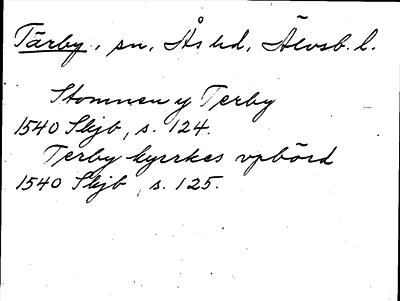 Tärby, sn, Ås hd, Älvsb. l.
Stomnen y Terby
1540 Skjb, s. 124.
Terby kyrkes vpbörd
1540 Skjb, s. 125.